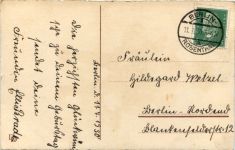 Berlin, d. 11.4.1930
Die herzlichsten Glückwünsche
zu Deinem Geburtstag
sendet Deine
Freundin
Fräulein
Hildegard Wetzel
Berlin-Nordend
Blankenfelderstr. 12
BERLIN